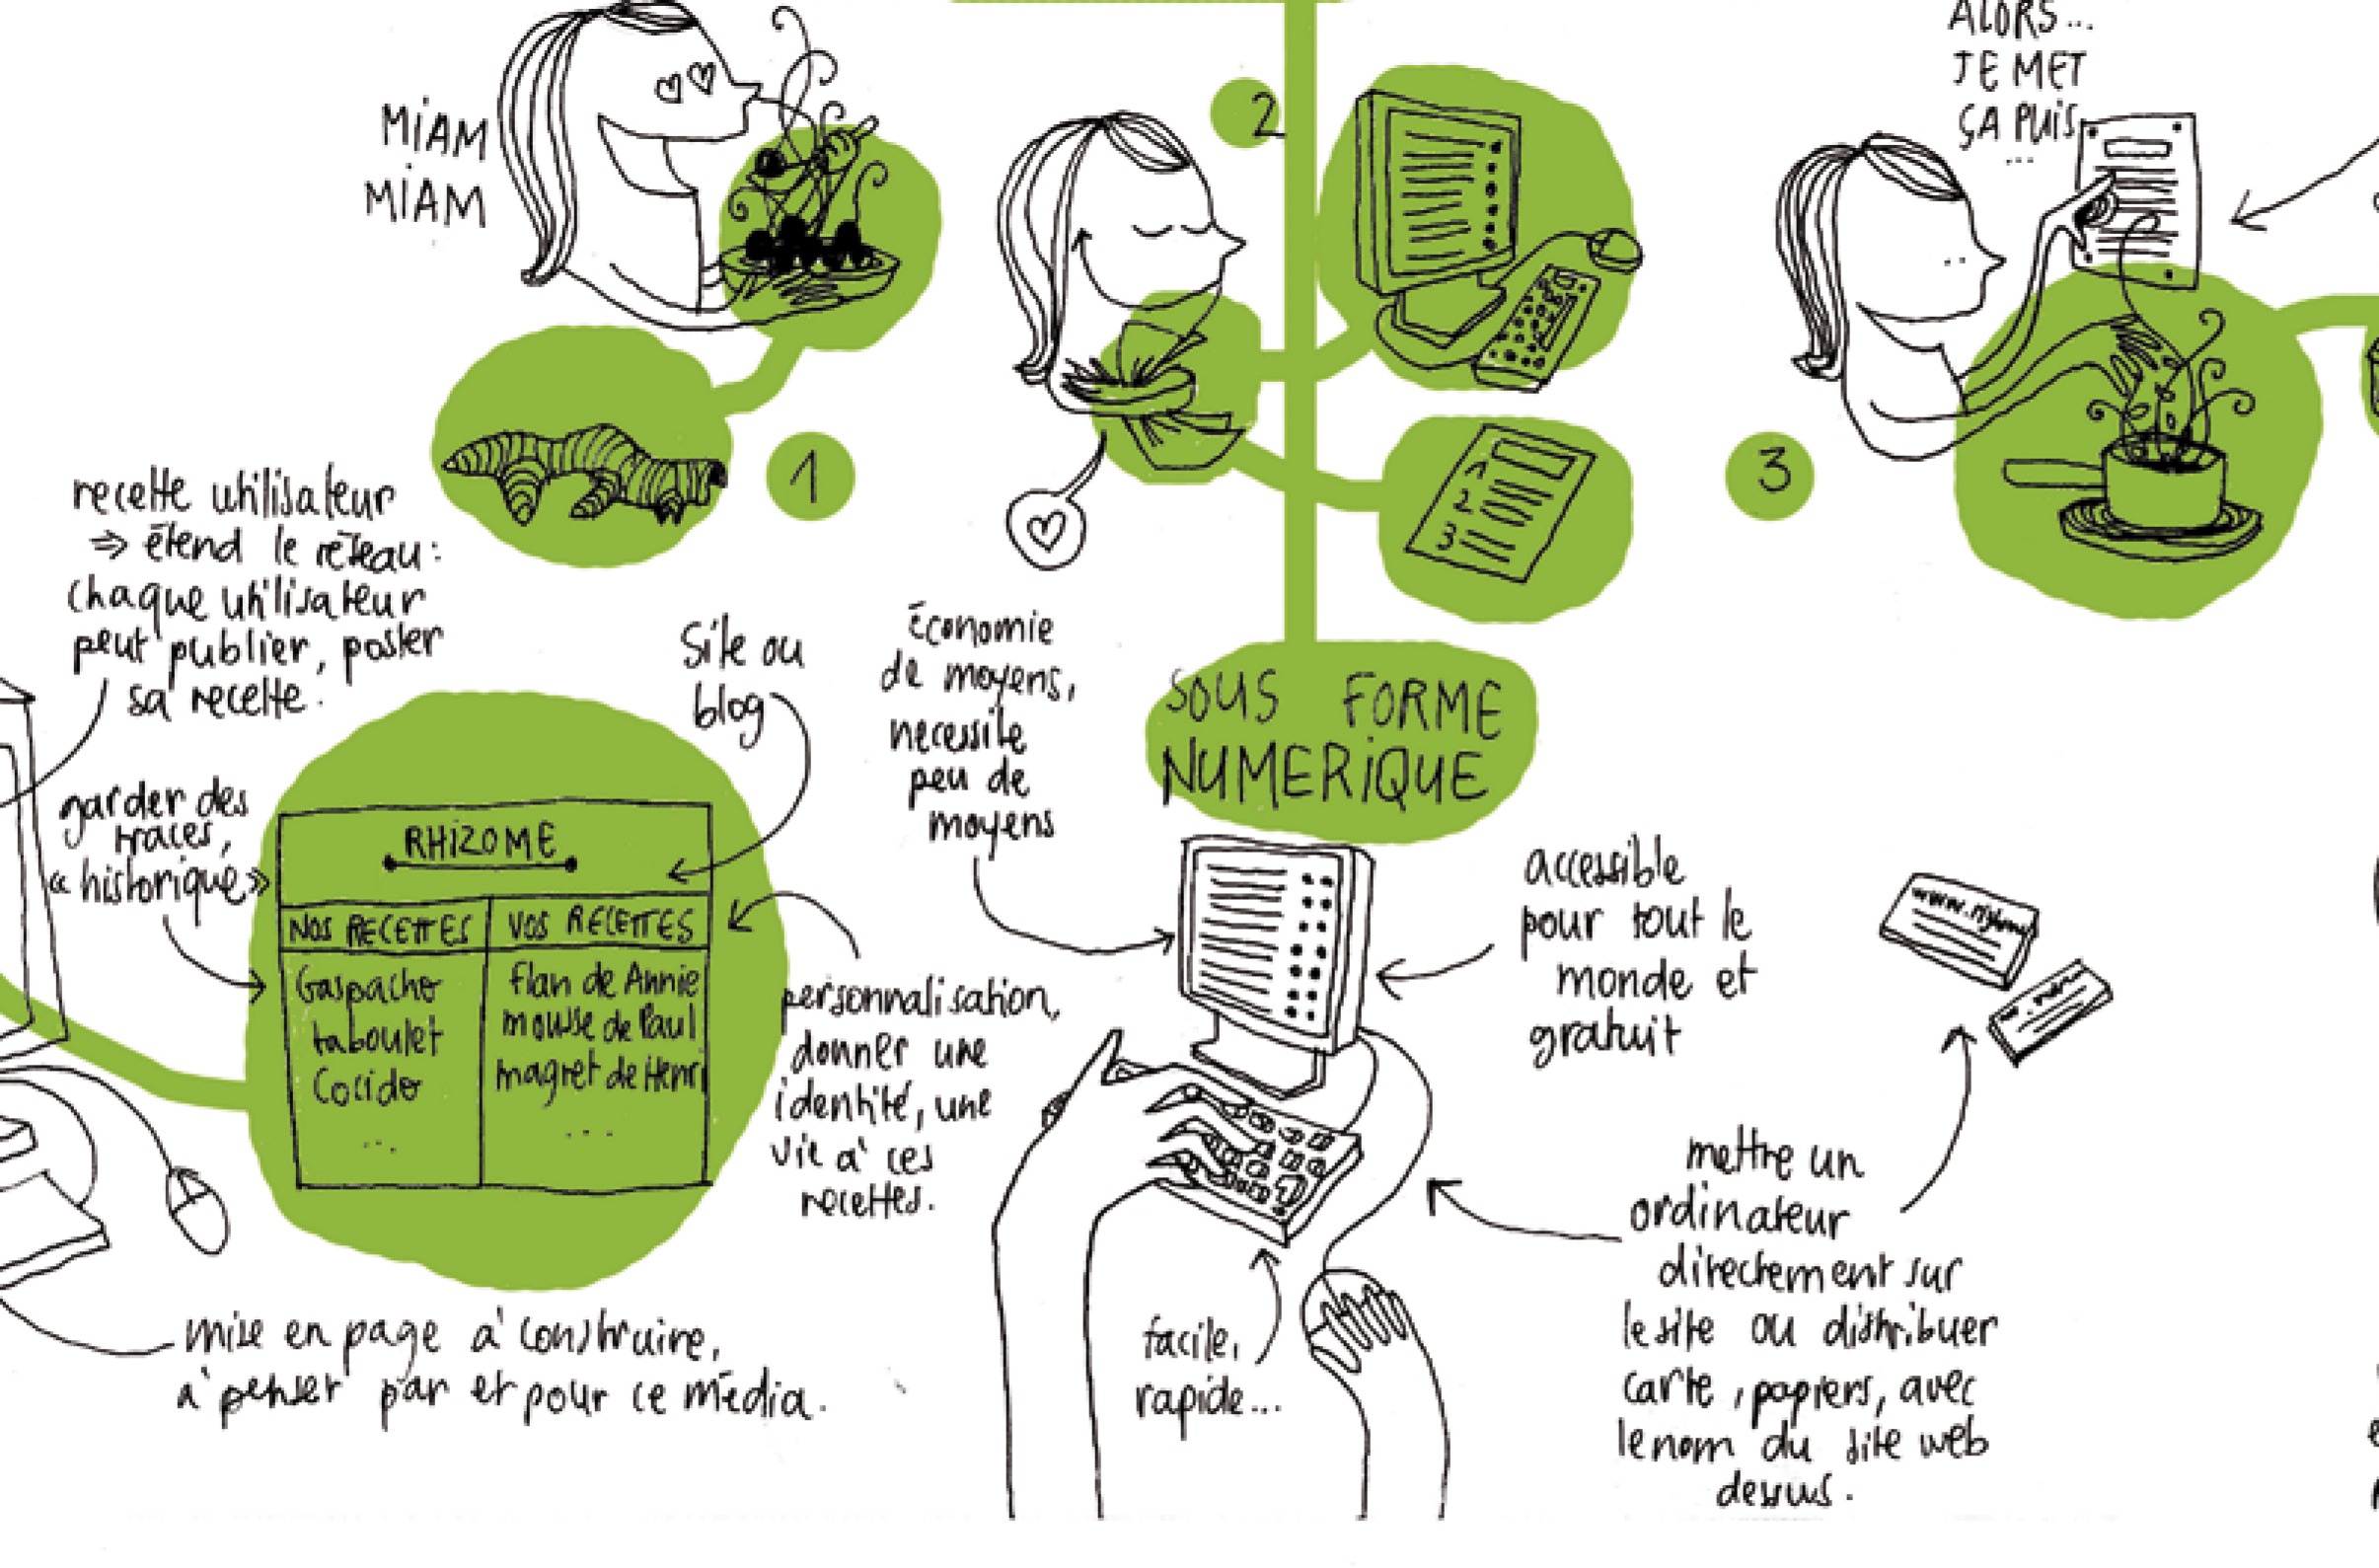 MiAM
MiAM
1
2
ALORS...
JE MET
ÇA PUiS
...
3
1
2
3
recette utilisateur
⇒ étend le réseau:
chaque utilisateur
peut publier, poster
sa recette.
garder des
traces,
« historique »
Site ou
blog
RHIZOME
NOS RECETTES
VOS RECETTES
Gaspacho
taboulet
Cocido
...
flan de Annie
mousse de Paul
magret de Henri
...
personnalisation,
donner une
identité, une
vie à ces
recettes.
mise en page à construire,
à penser par et pour ce média.
économie
de moyens,
necessite
peu de
moyens
SOUS FORME
NUMERiQUE
accessible
pour tout le
monde et
gratuit
facile,
rapide...
mettre un
ordinateur
directement sur
le site ou distribuer
carte, papiers, avec
le nom du site web
dessus.